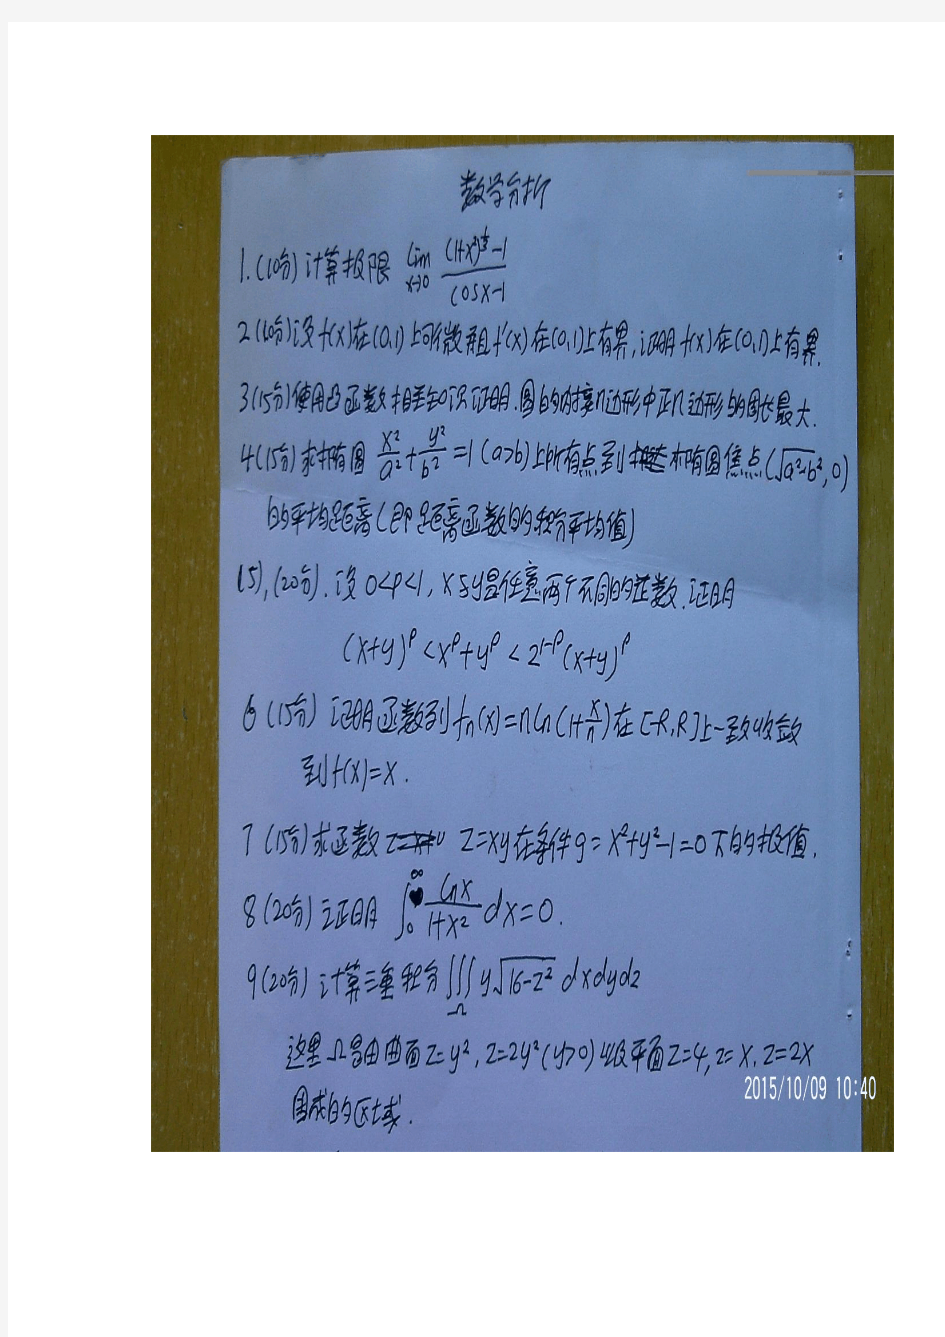 数学分析
1.(10分)计算极限 lim x→0 ((1+x²)^{1/3}-1)/(cosx-1)
2(10分)设f(x)在(0,1)上可微且f'(x)在(0,1)上有界,证明f(x)在(0,1)上有界.
3(15分)使用凸函数相关知识证明.圆的内接n边形中正n边形的周长最大.
4(15分)求椭圆 x²/a²+y²/b²=1(a>b)上所有点到 椭圆焦点(√(a²-b²),0)
的平均距离(即距离函数的积分平均值)
(5),(20分).设0<p<1,x与y是任意两个不同的正数.证明
(x+y)^p<x^p+y^p<2^{1-p}(x+y)^p
6(15分)证明函数列fn(x)=nln(1+x/n)在[-R,R]上一致收敛
到f(x)=x.
7(15分)求函数 z=xy在条件g=x²+y²-1=0下的极值.
8(20分)证明 ∫₀^∞ lnx/(1+x²) dx=0.
9(20分)计算三重积分∭_Ω y√(16-z²) dxdydz
这里Ω是由曲面z=y²,z=2y²(y>0)以及平面z=4,z=x,z=2x
2015/10/09 10:40
围成的区域.